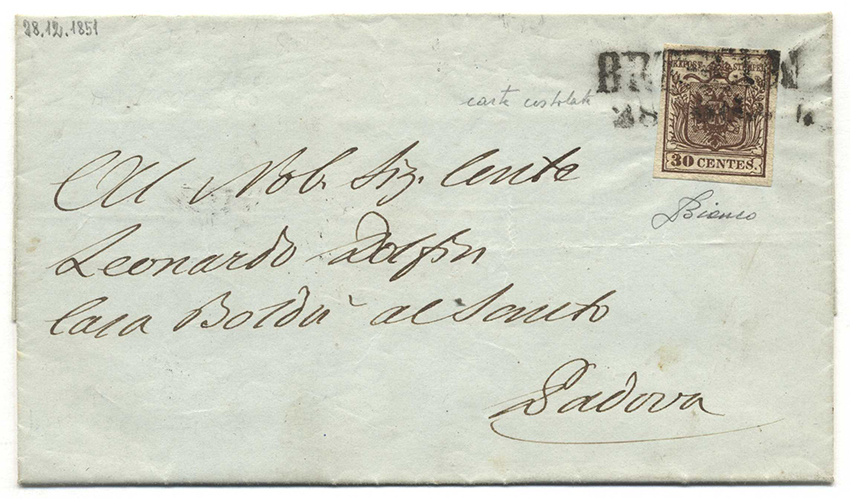 28.12.1851
30 CENTES.
carta costolata
Al Nob. Sig. Conte
Leonardo Dolfin
Casa Boldù al Santo
Padova
28